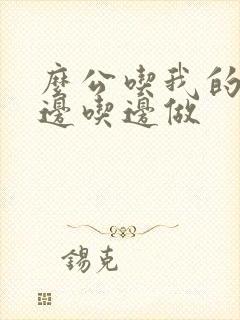 麼公喫我的
邊喫邊做
錫克